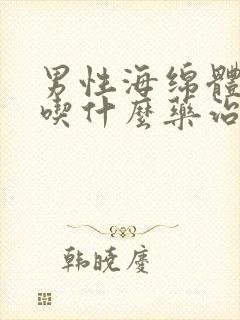 男性海绵體
喫什麼藥治
韩晓慶